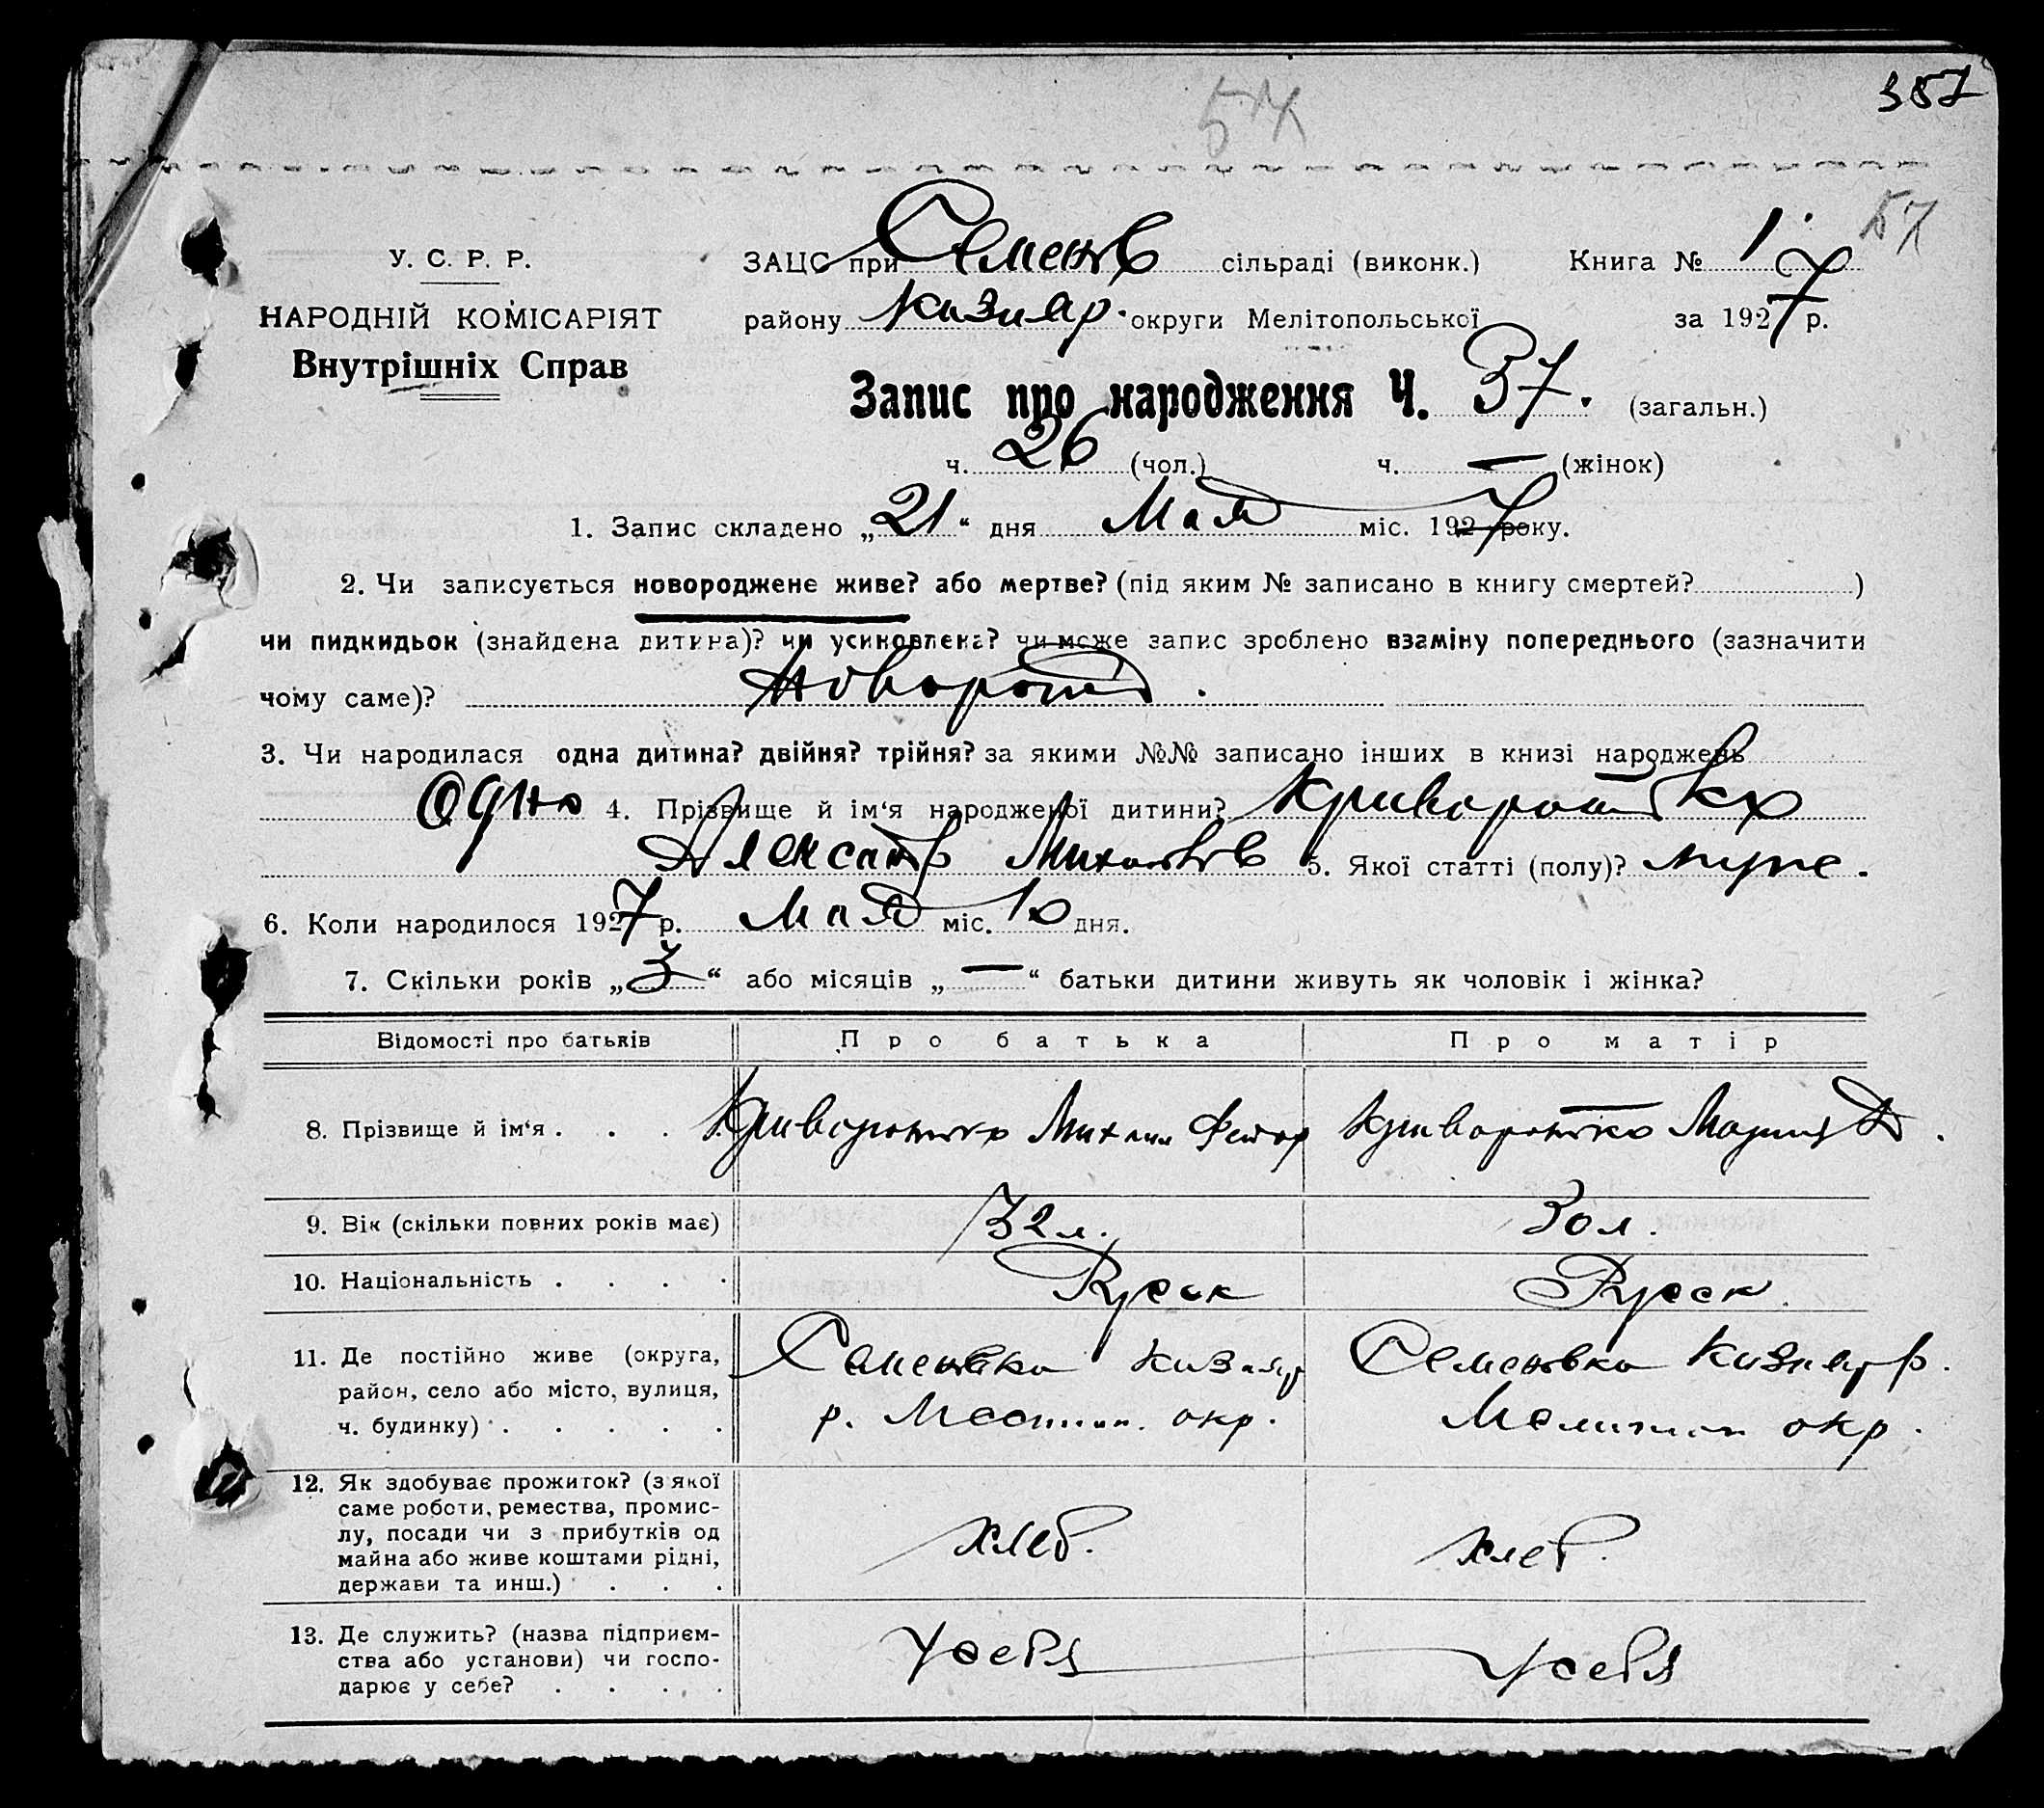 387
57
57
У. С. Р. Р.
НАРОДНІЙ КОМІСАРІЯТ
Внутрішніх Справ
ЗАЦС при Семенов сільраді (виконк.) Книга № 1
району Кизияр. округи Мелітопольської за 1927 р.
Запис про народження Ч. 37. (загальн.)
ч. 26 (чол.) ч. — (жінок)
1. Запис складено „21“ дня Мая міс. 1927 року.
2. Чи записується новороджене живе? або мертве? (під яким № записано в книгу смертей? )
чи пидкидьок (знайдена дитина)? чи усиновлена? чи може запис зроблено взаміну попереднього (зазначити
чому саме)?
3. Чи народилася одна дитина? двійня? трійня? за якими №№ записано інших в книзі народжень
Одно 4. Прізвище й ім‘я народженої дитини?
Александр 5. Якої статті (полу)? муже.
6. Коли народилося 1927 р. Мая міс. 10 дня.
7. Скільки років „3“ або місяців „—“ батьки дитини живуть як чоловік і жінка?
Відомості про батьків Про батька Про матір
8. Прізвище й ім‘я . . . . Михаил Федор
9. Вік (скільки повних років має) 32 л. 30 л.
10. Національність . . . . Руск Руск.
11. Де постійно живе (округа, Семеновка Кизияр Семеновка Кизияр р.
район, село або місто, вулиця, р. окр. окр.
ч. будинку) . . . . .
12. Як здобуває прожиток? (з якої
саме роботи, ремества, промис-
лу, посади чи з прибутків од хлеб. хлеб.
майна або живе коштами рідні,
держави та инш.) . . .
13. Де служить? (назва підприєм- У себя У себя
ства або установи) чи госпо-
дарює у себе? . . . .